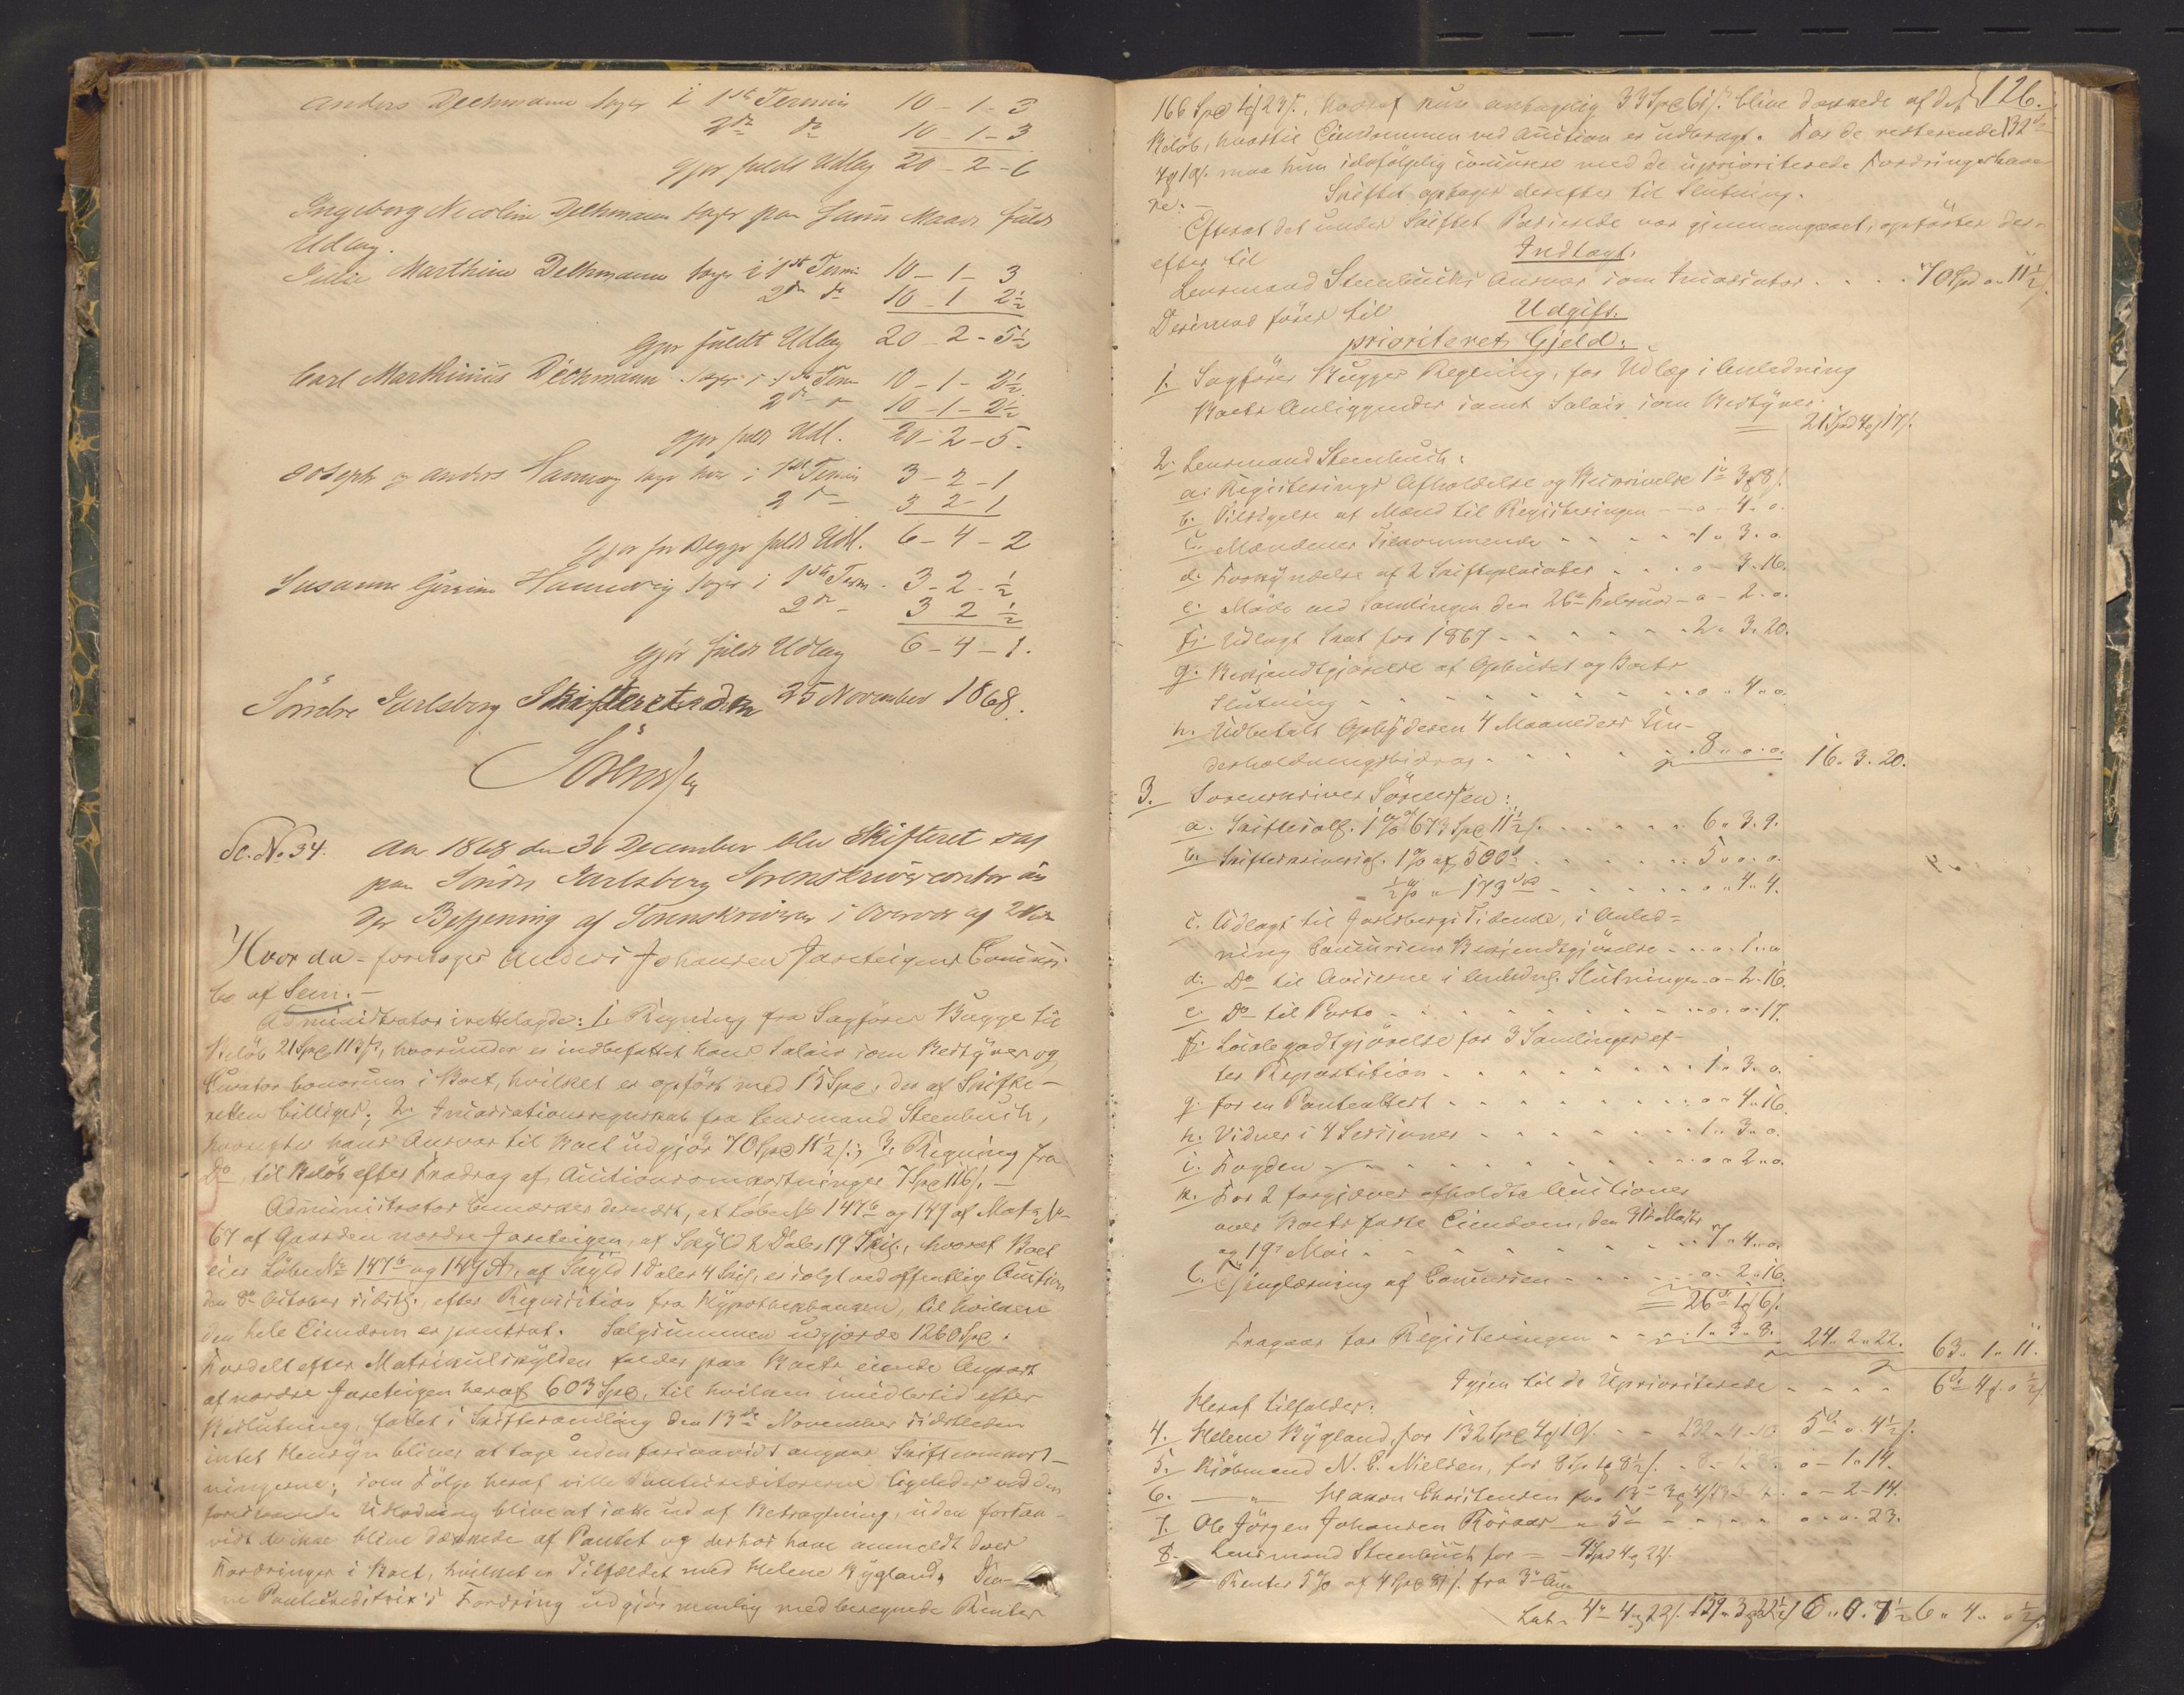 Anders Dechmann tager i 1ste Termin 10 - 1 - 3
2den do 10 - 1 - 3
Gjør fuldt Udlæg 20 - 2 - 6
Ingeborg Nicoline Dechmann tager paa samme Maade fuldt
Udlæg.
Julie Marthine Dechmann tager i 1ste Termin 10 - 1 - 3
2den do 10 - 1 2½
Gjør fuldt Udlæg 20 - 2 - 5½
Carl Marthinius Dechmann tager i 1ste Term 10 - 1 - 2½
2den - 10 - 1 - 2½
gjør fuldt Udl. 20 - 2 - 5.
Joseph og Anders Hannevig tager hver i 1ste Termin 3 - 2 - 1
2 - 3 2 - 1
Gjør for Begge fuldt Udl. 6 - 4 - 2
Susanne Hannevig tager i 1ste Term. 3 - 2 - ½
2den - 3 2 ½
Gjør fuldt Udlæg 6 - 4 - 1.
Søndre Jarlsberg Skifteret den 25 November 1868.
Sörensen
Sc. No 34. Aar 1868 den 30 December blev Skifteret sat
paa Søndre Jarlsberg Sorenskrivercontor un-
der Betjening af Sorenskriveren i Overvær af 2 Vidner
Hvor da - foretoges Anders Johansen Jareteigens Concurs-
bo af Sem. -
Administrator irettelagde: 1. Regning fra Sagfører Bugge til
Beløb 21 Spd 113 s, hvorunder er indbefattet hans Salair som Bestyrer og
Curator bonorum i Boet, hvilket er opført med 15 Spd. der af Skifte-
retten billiges; 2. Incassationsregnskab fra Lensmand Steenbuch,
hvorefter hans Ansvar til Boet udgjør 70 Spd 11½ s.; 3. Regning fra
Do, til Beløb efter Fradrag af Auctionsomkostninger 7 Spd 116 s. -
Administrator bemærker dernæst, at Løbe No 147b og 149 af Matr. No
67 af Gaarden nordre Jareteigen, af Skyld 2 Daler 19 Skil., hvoraf Boet
eier Løbe No 147b og 149 A, af Skyld 1 Daler 4 Skil, er solgt ved offentlig Auction
den 8de October sidstl., efter Reqvisition fra Hypothekbanken, til hvilken
den hele Eiendom er pantsat. Salgssummen udgjorde 1260 Spd.
Fordelt efter Matrikulskylden falder paa Boets eiende Anpart
af nordre Jareteigen heraf 603 Spd, til hvilken imidlertid efter
Beslutning, fattet i Skiftesamling den 13de November sidstleden
intet Hensyn bliver at tage uden forsaavidt angaar Skifteomkost-
ningerne; som Følge heraf ville Pantecreditorerne ligeledes ved den
forestaaende Udlodning blive at sætte ud af Betragtning, uden forsaa-
vidt de ikke blive dækkede af Pantet og derhos have anmeldt deres
Fordringer i Boet, hvilket er Tilfældet med Helene Bygland. Den-
ne Pantecreditrix's Fordring udgjør nemlig med beregnede Renter
126.
166 Spd 4 ort 23 s., hvoraf kun antagelig 33 Spd 61 s. blive dækkede af det
Beløb, hvortil Eiendommen ved Auction er udbragt. For de resterende 132 Spd
4 ort 10 s. maa hun ifølgelig concurrere med de uprioriterede Fordringshave-
re. - Skiftet optages derefter til Slutning.
Efterat det under Skiftet Passerede var gjennemgaaet, opførtes der-
efter til Indtægt.
Lensmand Steenbuchs Ansvar som Incassator . . . . 70 Spd " 11½ s.
Derimod føres til Udgift.
prioriteret Gjeld:
1. Sagfører Bugges Regning, for Udlæg i Anledning
Boets Anliggender samt Salair som Bestyrer 21 Spd 4 ort 17 s.
2. Lensmand Steenbuch:
a. Registerings Afholdelse og Beskrivelse 1 Spd 3 ort 8 s.
b. Tilsigelse af Mænd til Registeringen - - o - 4. o.
c. Mændenes Tilkommende - - - - 1 " 3. o.
d. Forkyndelse af 2 Skifteplacater - - . o - 3. 16.
e. Møde ved Samlingen den 26de Februar - o - 2. o.
f. Udlagt Skat for 1867 - - - - - 2 " 3. 20.
g. Bekjendtgjørelse af Opbudet og Boets
Slutning - - - - - - - o " 4 " o.
h. Udbetalt Opbyderen 4 Maaneders Un-
derholdningsbidrag - - - - 8 " o. o. 16. 3. 20.
3. Sorenskriver Sörensen:
a. Skiftesalg. 1 % af 673 Spd 11½ s. - - - - 6 " 3. 9.
b. Skifteskriverg. 1 % af 500 d - - - - 5 " o. o.
½ % " 173 Spd - - - - - o " 4 " 4.
c. Udlagt til Jarlsbergs Tidende, i Anled-
ning Concursens Bekjendtgjørelse - - o - 1 " o
d. Do til Aviserne i Anledng. Slutningen - o - 2 - 16.
e. Do til Porto - - - - - - - o. o. 17.
f. Localegodtgjørelse for 3 Samlinger ef-
ter Repartition - - - - - - 1 " 3. o.
g. for en Panteattest - - - - - - o " 4 " 16.
h. Vidner i 4 Sessioner - - - - - 1 " 3 " o.
i. Fogden - - - - - - - o " 2 " o.
k. For 2 forgjæves afholdte Auctioner
over Boets faste Eiendom, den 31te Marts
og 19de Mai - - - - - - 7 " 4 " o.
l. Thinglæsning af Concursen - - - o. 2 " 16.
26 Spd 1 ort 6 s.
Fragaar for Registeringen - - - 1 " 3 " 8. 24 " 2 " 22. 63 " 1 " 11.
Igjen til de Uprioriterede - - - - 6 Spd 4 ort o ½ s
Heraf tilfalder:
4. Helene Bygland, for 132 Spd 4 ort 10 s. - - 132 - 4 - 10 5 Spd o. 4½ s.
5. Kjøbmand N. C. Nielsen, for 8 Sp 1 ort 8½ s. o - 1 " 14.
6. - " - Haakon Christensen for 13 Spd 3 ort 4 s o - 2 - 14.
7. Ole Jørgen Johansen Rörkær - " 5 Spd - - - - o " o. 23.
8. Lensmand Steenbuch for - 4 Spd 4 ort 22 s.
Renter 5 % af 4 Spd s. fra 3de Aug
Lat. 4 Spd 4 ort 22 s. 159 " 3 ort 22½ s 6 " 0. 7½ 6 " 4 " o ½ s.